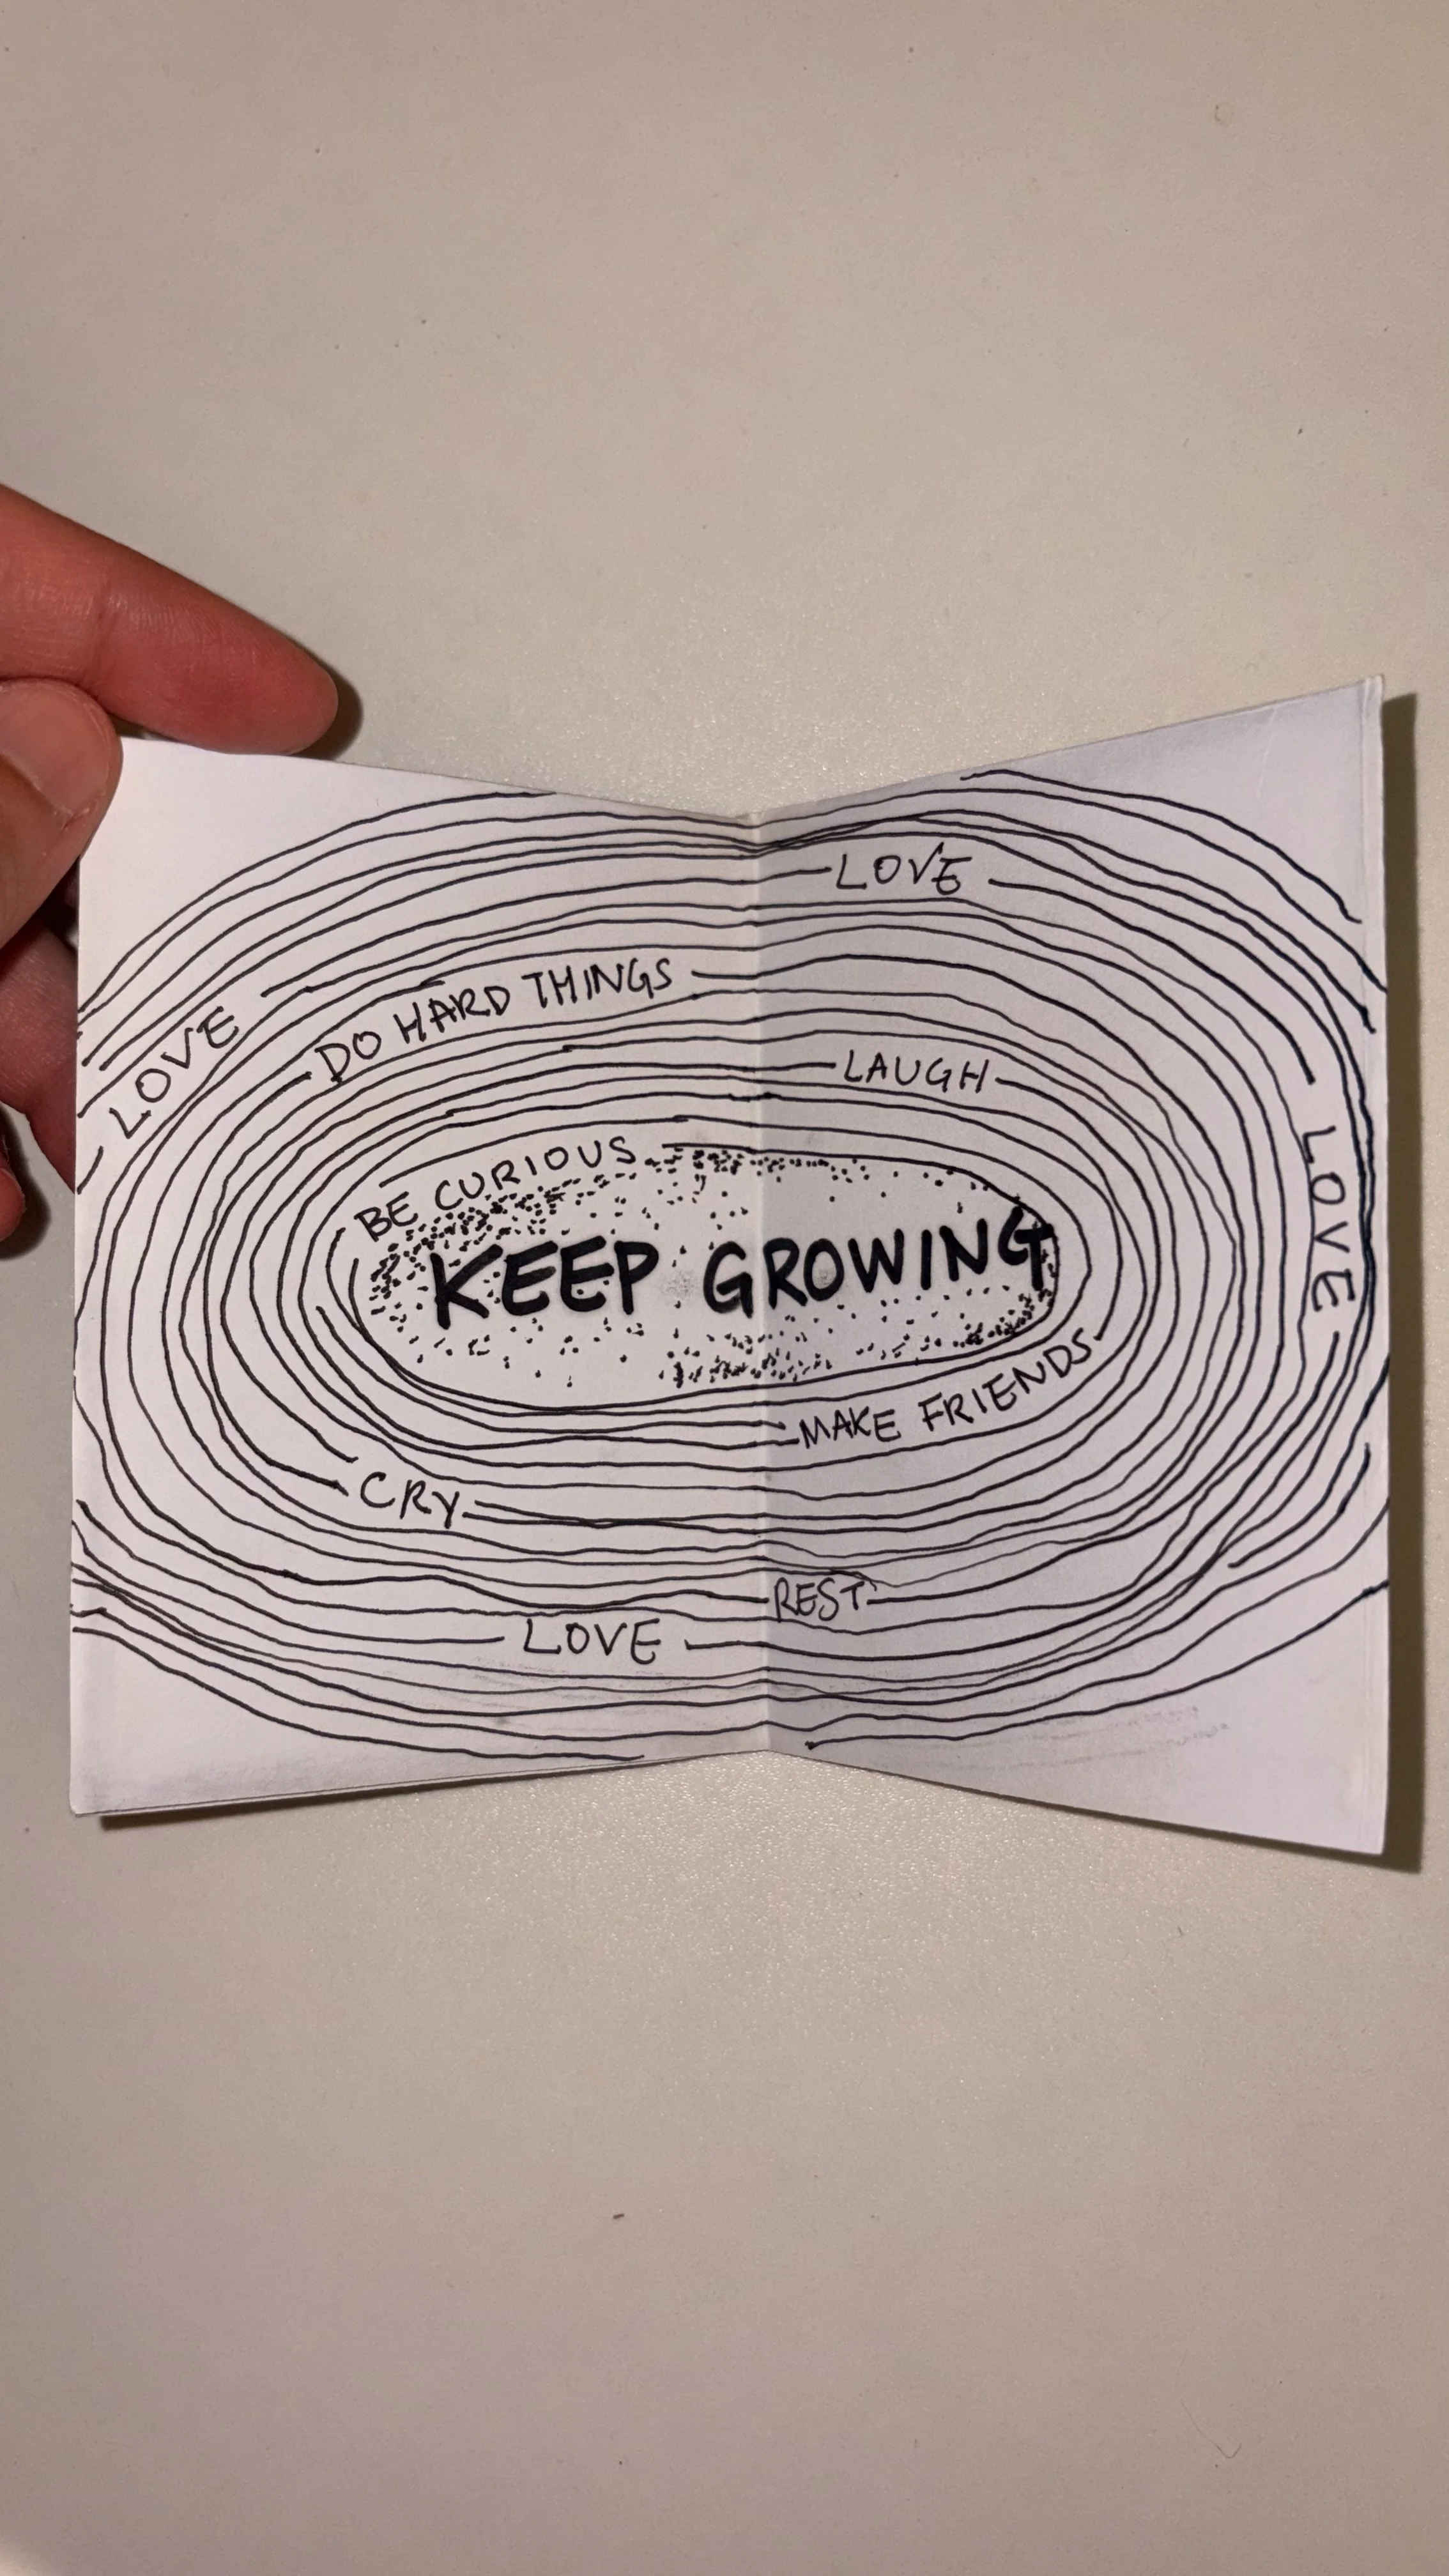 LOVE
DO HARD THINGS
LOVE
LAUGH
BE CURIOUS
KEEP GROWING
LOVE
MAKE FRIENDS
CRY
REST
LOVE